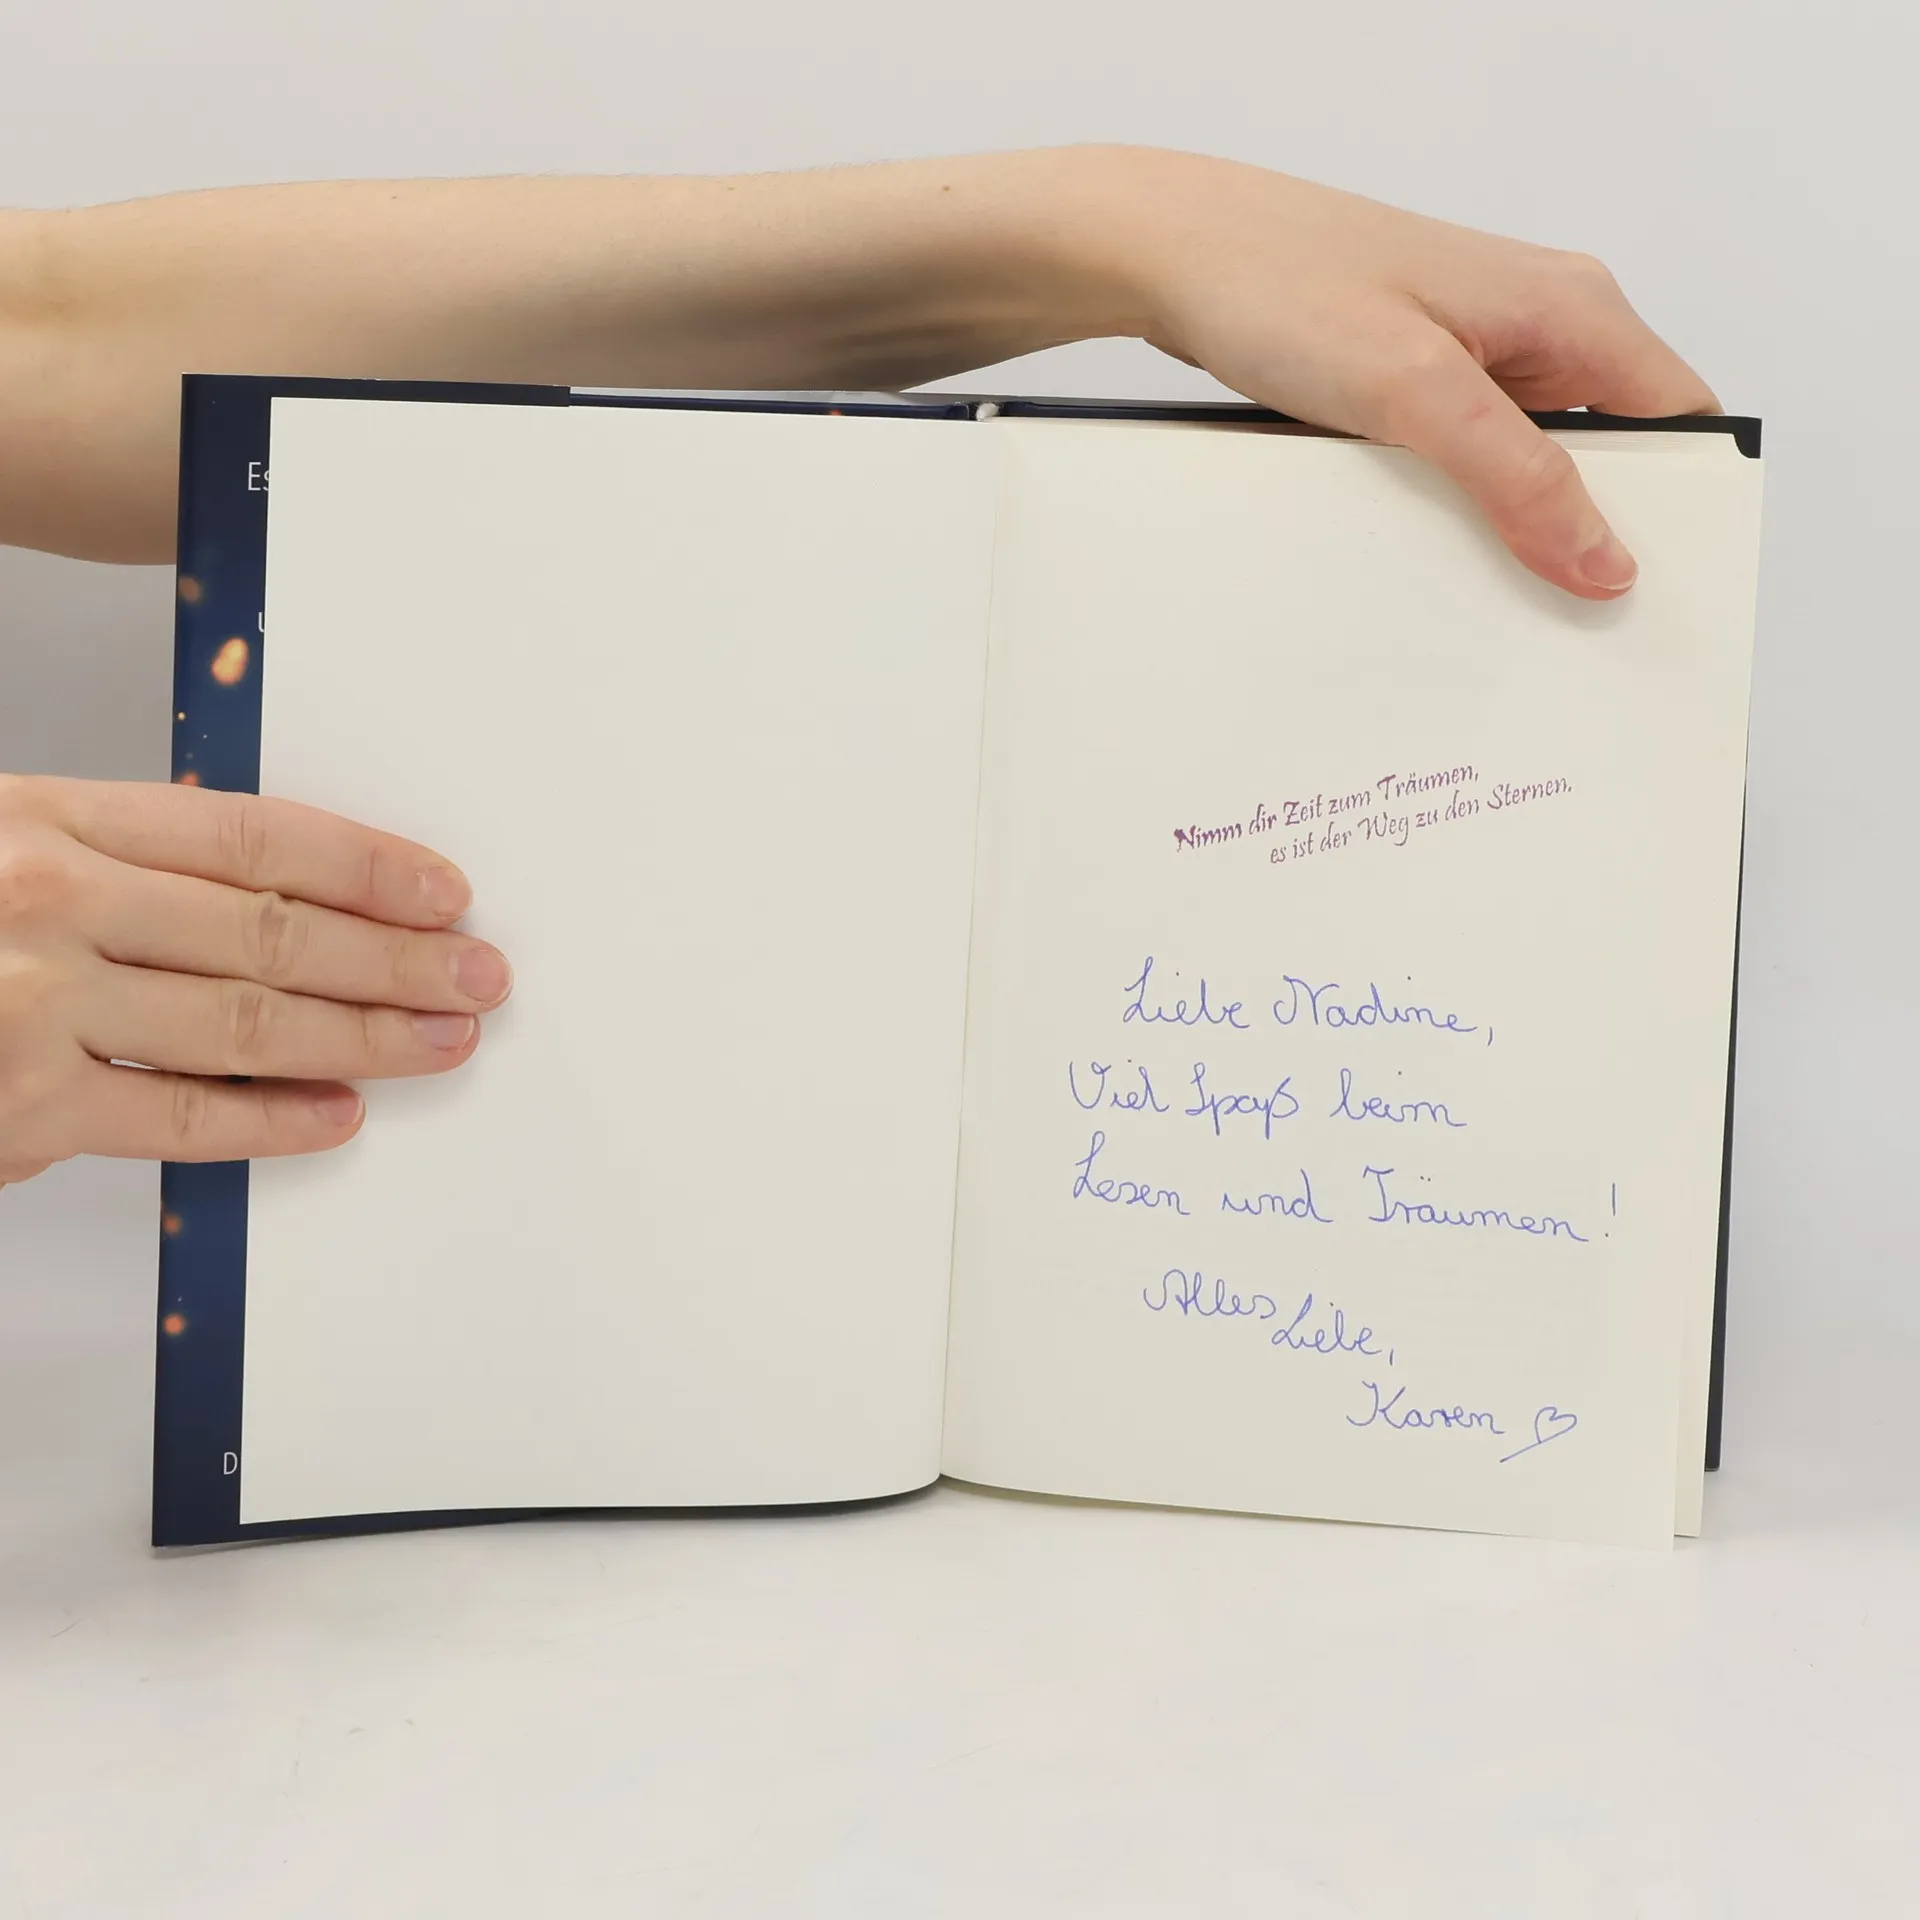 Es
D
Nimm dir Zeit zum Träumen,
es ist der Weg zu den Sternen.
Liebe Nadine,
Viel Spaß beim
Lesen und Träumen!
Alles Liebe,
Karen